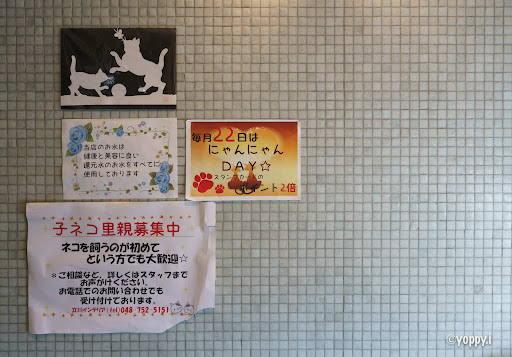 当店のお水は
健康と美容に良い
還元水のお水をすべてに
使用しております
毎月22日は
にゃんにゃん
DAY☆
スタンプカードの
ポイント2倍
子ネコ里親募集中
ネコを飼うのが初めて
という方でも大歓迎☆
＊ご相談など、詳しくはスタッフまで
お声がけください。
お電話でのお問い合わせでも
受け付けております。
立川インテリア (tel) 048-752-5151
©yoppy.l